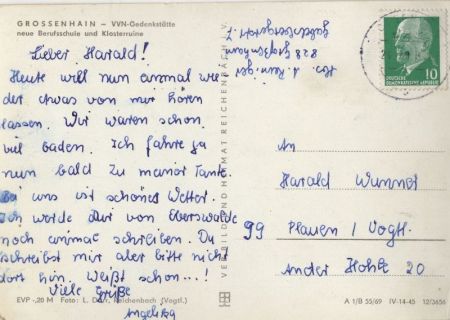 GROSSENHAIN — VVN-Gedenkstätte
neue Berufsschule und Klosterruine
Lieber Harald!
Heute will nun einmal wie
der etwas von mir hören
lassen. Wir waren schon
viel baden. Ich fahre ja
nun bald zu meiner Tante.
Bei uns ist schönes Wetter.
Ich werde dir von Eberswalde
noch einmal schreiben. Du
schreibst mir aber bitte nicht
dort hin. Weißt schon...!
Viele Grüße
EVP -,20 M Foto: L. Dörr, Reichenbach (Vogtl.)
VERLAG BILD UND HEIMAT REICHENBACH I. V.
828 Großenhain
DEUTSCHE
DEMOKRATISCHE REPUBLIK
10
An
Harald Wunner
99 Plauen / Vogtl.
Ander Hohle 20
A 1/B 55/69 IV-14-45 12/3656